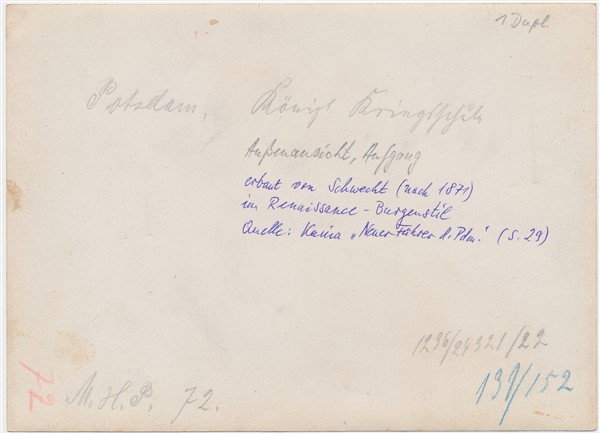 1 Dupl
Potsdam, Königl. Kriegsschule
Außenansicht, Aufgang
erbaut von Schwecht (nach 1871)
im Renaissance-Burgenstil
Quelle: Kania „Neuer Führer d. Pdm." (S. 29)
1236/24321/22
139/152
72
M. H. P. 72.